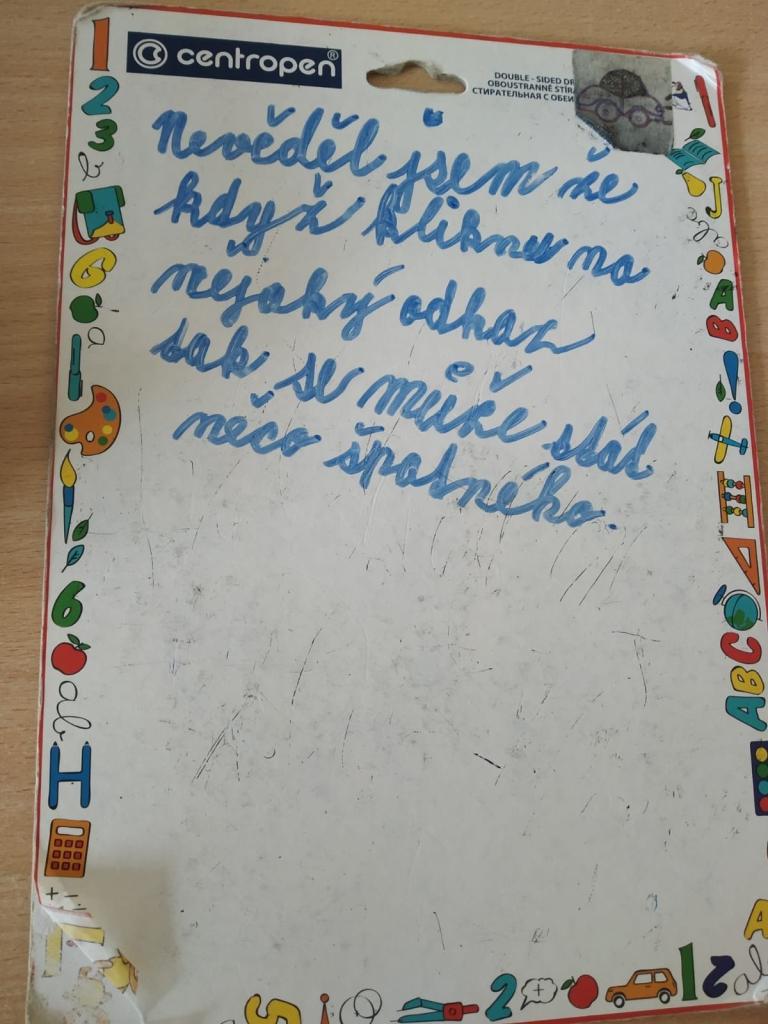 centropen®
DOUBLE - SIDED
OBOUSTRANNĚ
СТИРАТЕЛЬНАЯ С
Nevěděl jsem že
když kliknu na
nějaký odkaz
tak se může stát
něco špatného.